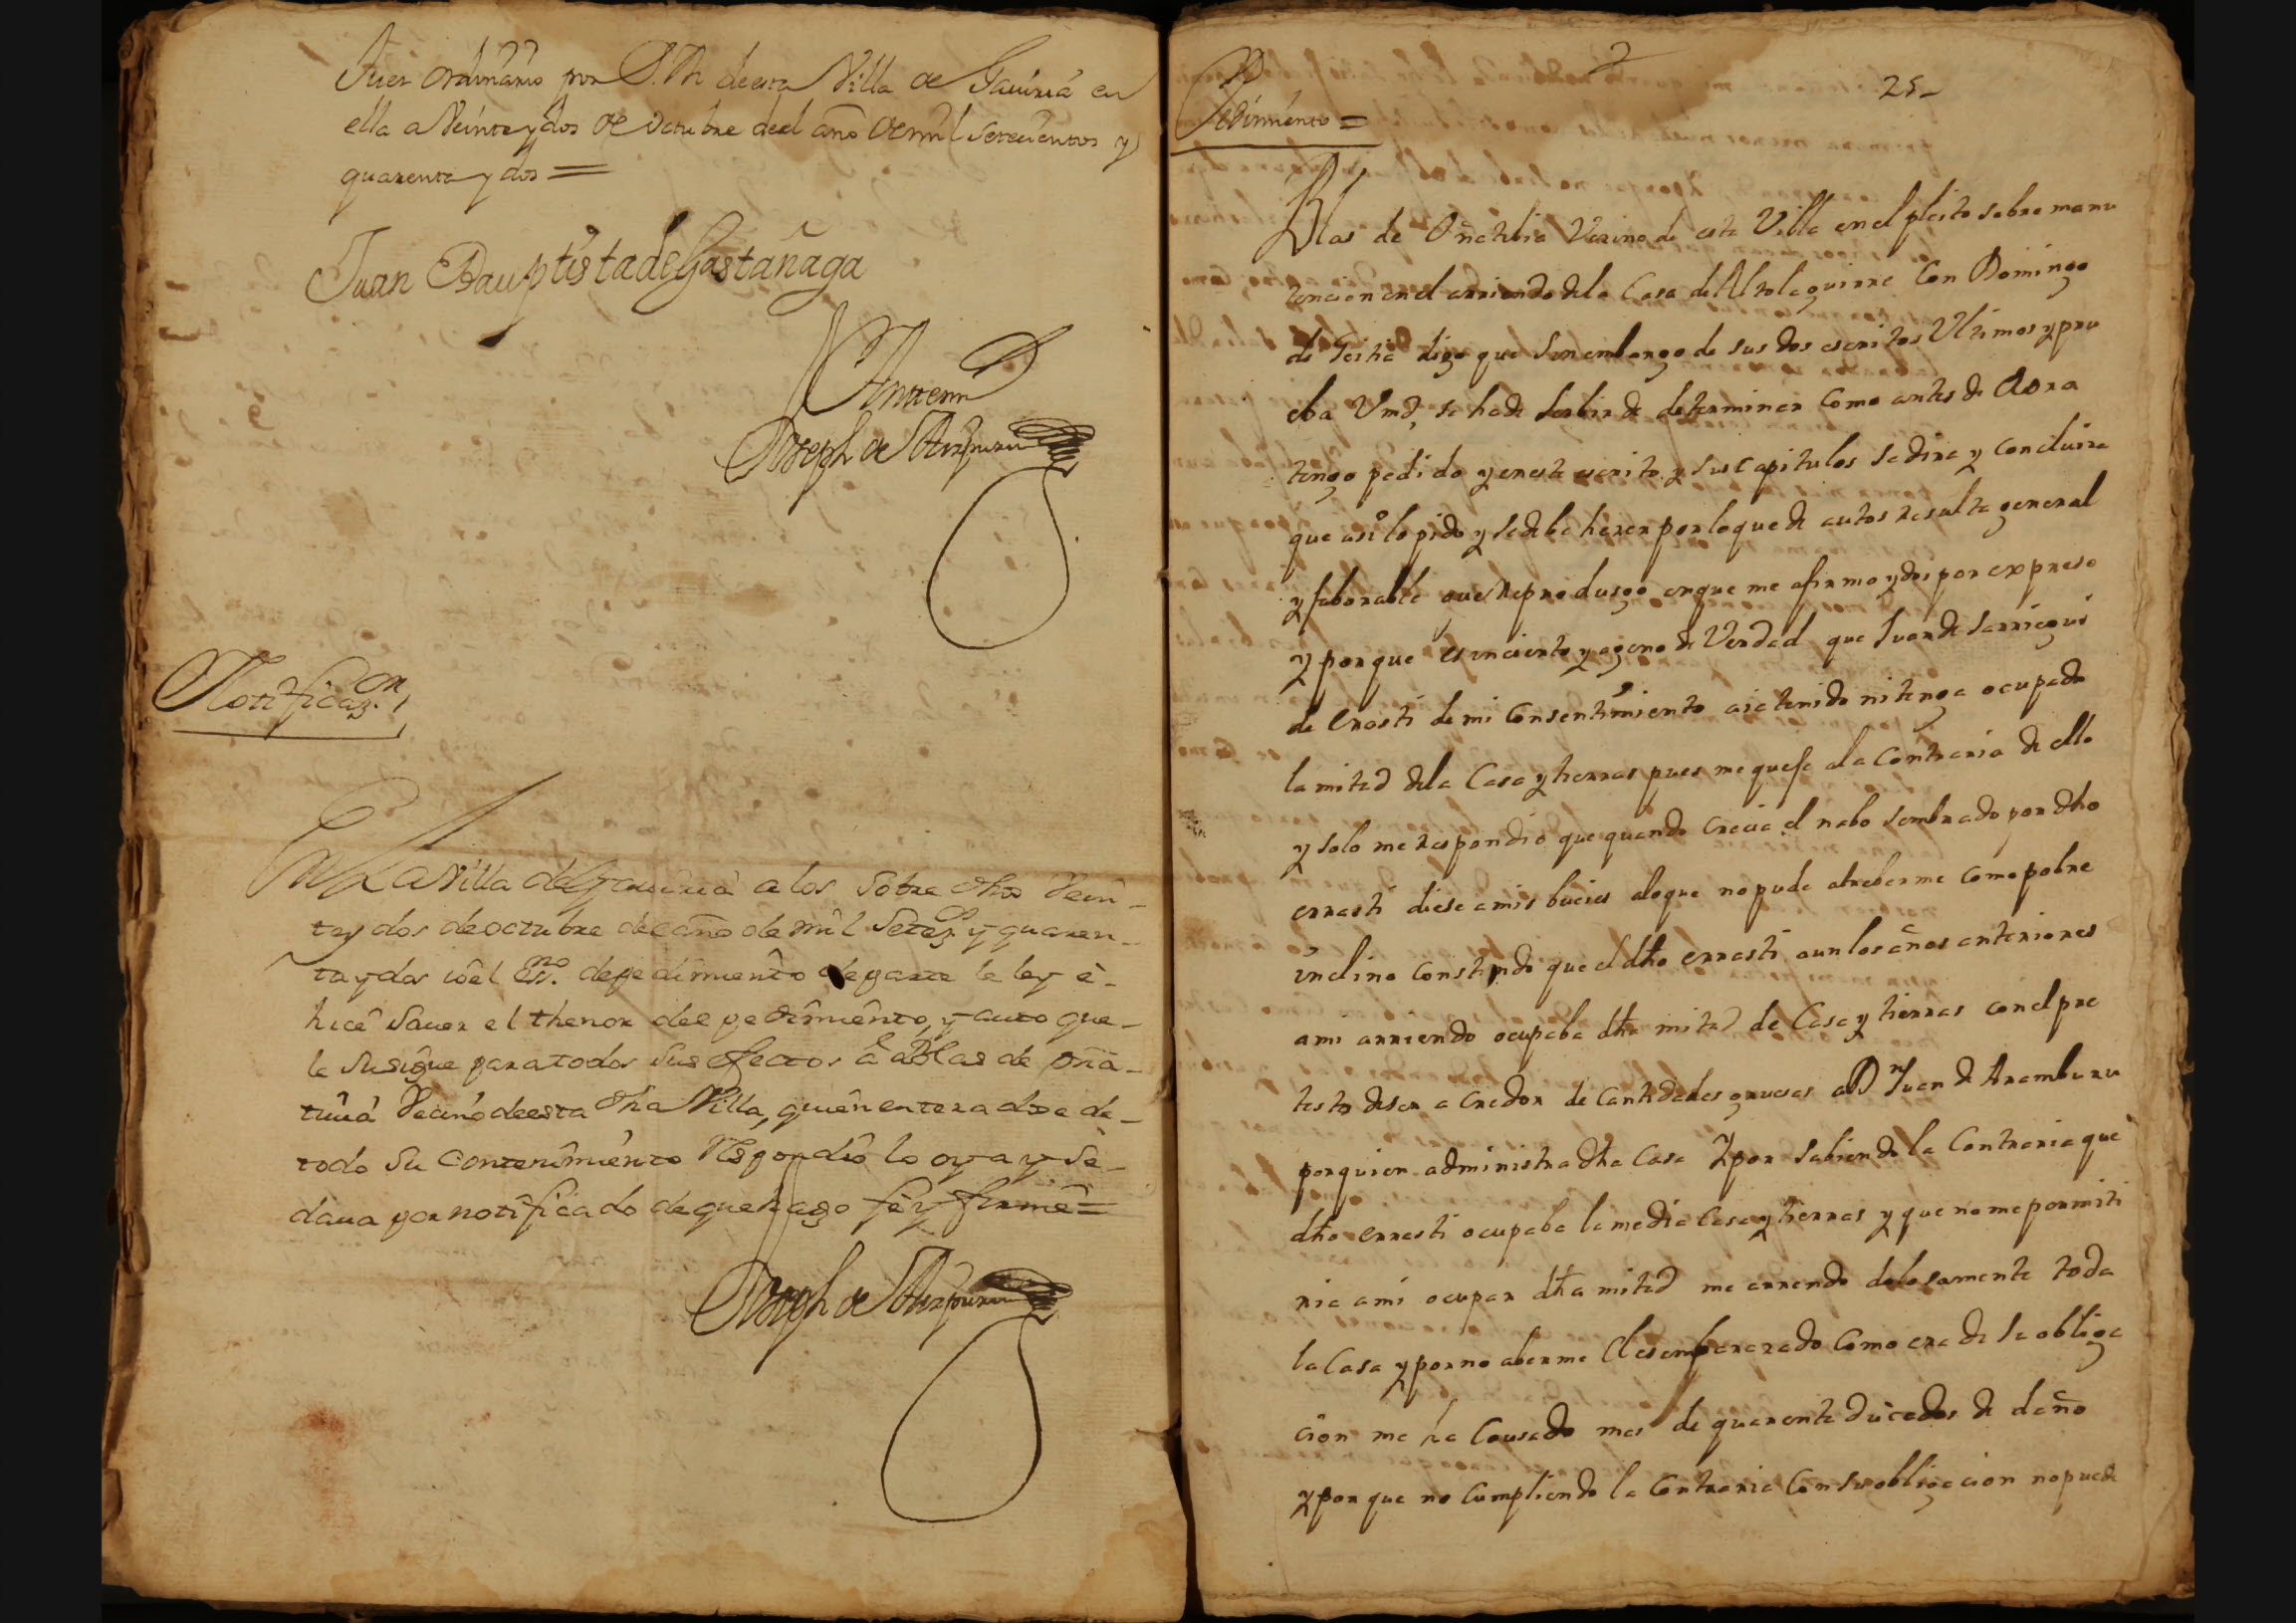 Juez ordinario por S.M. de esta Villa de Gauiria en
ella a Veinte y dos de Octubre de el año de mil setecientos y
quarenta y dos =
Juan Bauptista de Gastañaga
Antemi
Joseph de Aizpuru
Notificaz.on
En La Villa de Gauiria a los Sobre dhos Vein-
te y dos de octubre de el año de mil Setez.s y quaren-
ta y dos io el ess.no de pedimiento de parte le ley è-
hice Sauer el thenor de el pedimiento, y auto que-
le Su sigue para todos sus efectos â Blas de oña-
tiuia Vecino de esta dha Villa, quien enterado de-
todo Su Contenimiento Respondiò lo oya y se-
daua por notificado de que hago fè y firmè =
Joseph de Aizpuru
25-
Pedimiento =
Blas de Oñatibia Vezino de esta Villa en el pleito sobre manu
tencion en el arriendo dela Casa de Altoleguirre Con Domingo
de Goitia digo que Sin enbargo de sus dos escritos Ultimos y pru
eba Vmd, se ha de serbir de determinar Como antes de Aora
tengo pedido y en este escrito y sus capitulos se dira y Concluira
que asi lo pido y se debe hacer por lo que de autos resulta general
y faborable que Reprodusgo en que me afirmo y doi por expreso
y porque es incierto y ageno de Verdad que Juan de Sarriegui
de Erasti de mi Consentimiento aia tenido ni tenga ocupada
la mitad dela Casa y tierras pues me quese ala Contraria de ello
y solo me respondio que quando Crecia el nabo sembrado por dho
errasti diese a mis bueies alo que no pude atreberme Como pobre
inclino Constando que el dho errasti aun los años anteriores
a mi arriendo ocupaba dha mitad de Casa y tierras con el pre
testo de ser acredor de Cantidades gruesas a Dn Juan de Aramburu
por quien administra dha Casa y por Sabiendo la Contraria que
dho errasti ocupaba la media Casa y tierras y que no me permiti
ria a mi ocupar dha mitad me arrendo dolosamente toda
la Casa y por no aberme desembarazado Como era de su obliga
cion me ha Causado mas de quarenta ducados de daño
y por que no Cumpliendo la Contraria Con su obligacion no puede